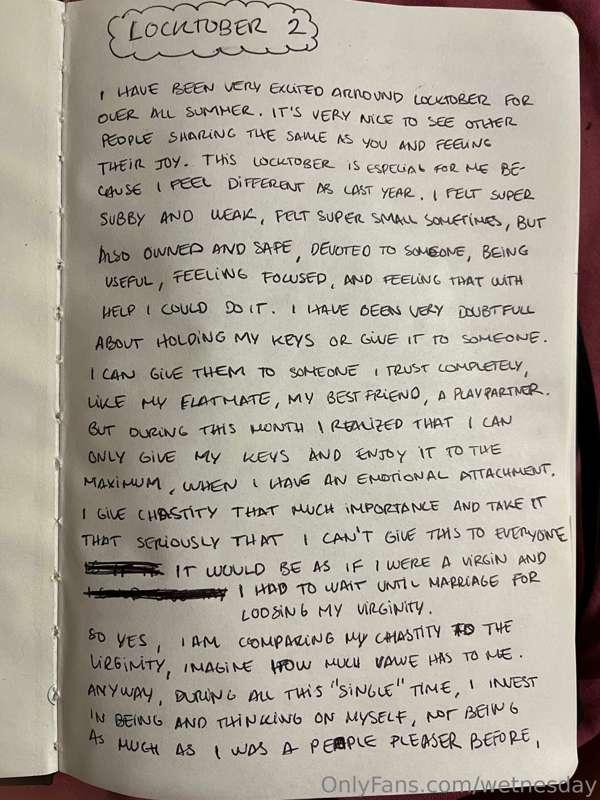 LOCKTOBER 2
I HAVE BEEN VERY EXCITED ARROUND LOCKTOBER FOR
OVER ALL SUMMER. IT'S VERY NICE TO SEE OTHER
PEOPLE SHARING THE SAME AS YOU AND FEELING
THEIR JOY. THIS LOCKTOBER IS ESPECIAL FOR ME BE-
CAUSE I FEEL DIFFERENT AS LAST YEAR. I FELT SUPER
SUBBY AND WEAK, FELT SUPER SMALL SOMETIMES, BUT
ALSO OWNED AND SAFE, DEVOTED TO SOMEONE, BEING
USEFUL, FEELING FOCUSED, AND FEELING THAT WITH
HELP I COULD DO IT. I HAVE BEEN VERY DOUBTFULL
ABOUT HOLDING MY KEYS OR GIVE IT TO SOMEONE.
I CAN GIVE THEM TO SOMEONE I TRUST COMPLETELY,
LIKE MY FLATMATE, MY BEST FRIEND, A PLAYPARTNER.
BUT DURING THIS MONTH I REALIZED THAT I CAN
ONLY GIVE MY KEYS AND ENJOY IT TO THE
MAXIMUM, WHEN I HAVE AN EMOTIONAL ATTACHMENT.
I GIVE CHASTITY THAT MUCH IMPORTANCE AND TAKE IT
THAT SERIOUSLY THAT I CAN'T GIVE THIS TO EVERYONE
IT WOULD BE AS IF I WERE A VIRGIN AND
I HAD TO WAIT UNTIL MARRIAGE FOR
LOOSING MY VIRGINITY.
SO YES, I AM COMPARING MY CHASTITY TO THE
VIRGINITY, IMAGINE HOW MUCH VALUE HAS TO ME.
ANYWAY, DURING ALL THIS "SINGLE" TIME, I INVEST
IN BEING AND THINKING ON MYSELF, NOT BEING
AS MUCH AS I WAS A PEOPLE PLEASER BEFORE,
OnlyFans.com/wetnesday